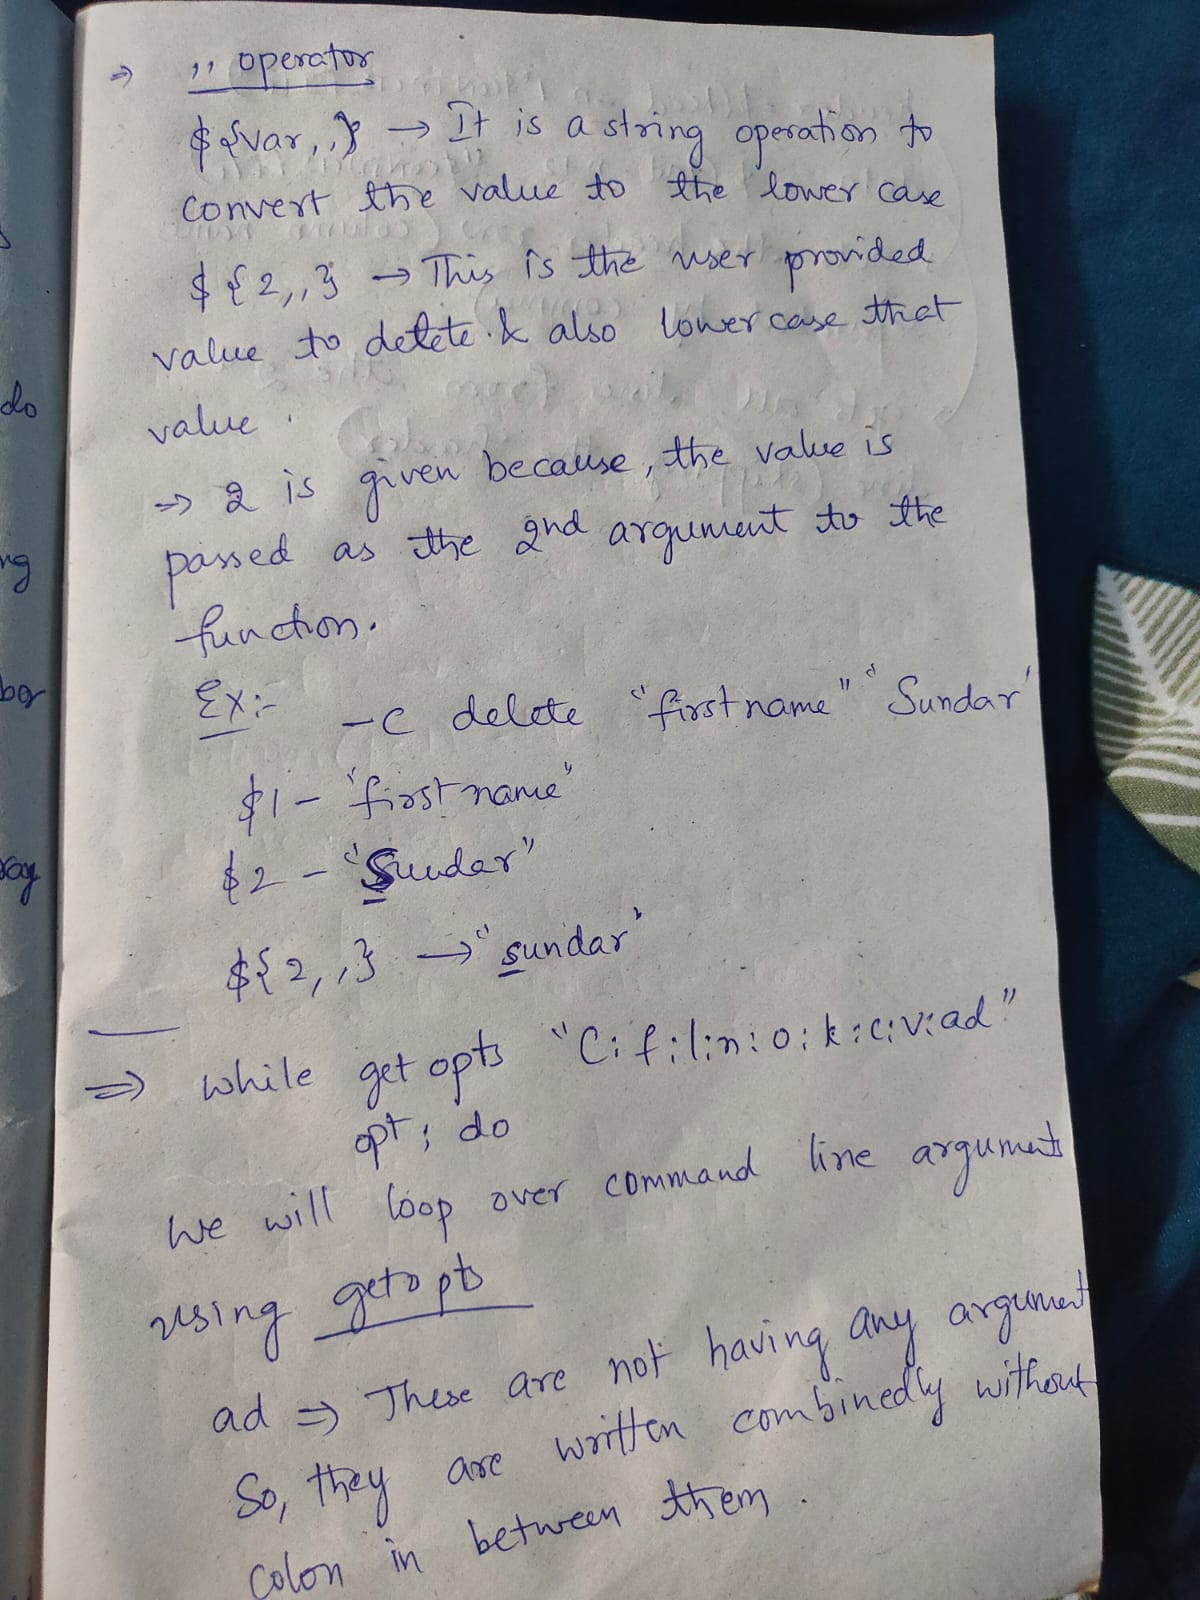 ⇒ ,, operator
${var,,} → It is a string operation to
convert the value to the lower case
${2,,} → This is the user provided
value to delete & also lower case that
value.
→ 2 is given because, the value is
passed as the 2nd argument to the
function.
Ex:- -C delete "firstname" "Sundar"
$1 - "firstname"
$2 - "Sundar"
${2,,} → "sundar"
⇒ while getopts "C:f:l:n:o:k:c:v:ad"
opt; do
We will loop over command line arguments
using getopts
ad ⇒ These are not having any argument
So, they are written combinedly without
colon in between them.
do
ng